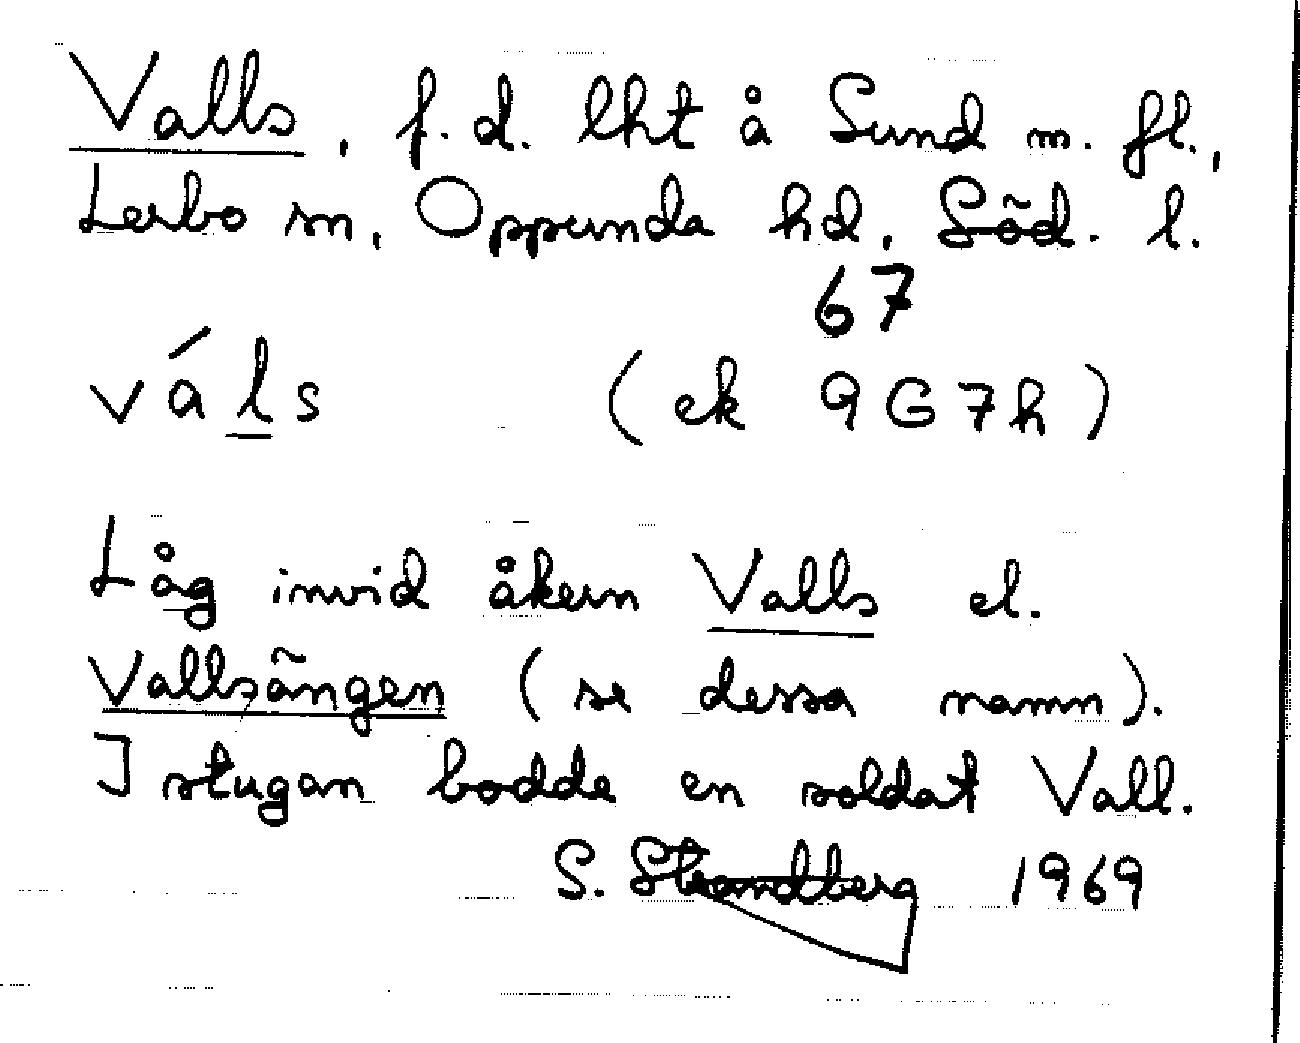 Valls, f.d. lht å Sund m. fl.,
Lerbo sn, Oppunda hd, Söd. l.
67
váls (ek 9G7h)
Låg invid åkern Valls el.
Vallsängen (se dessa namn).
I stugan bodde en soldat Vall.
S. Strandberg 1969